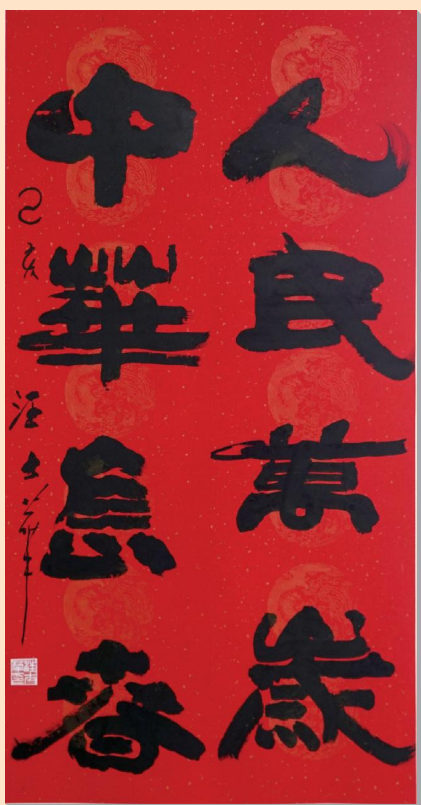 人民萬歲
中華春
己亥 汪華